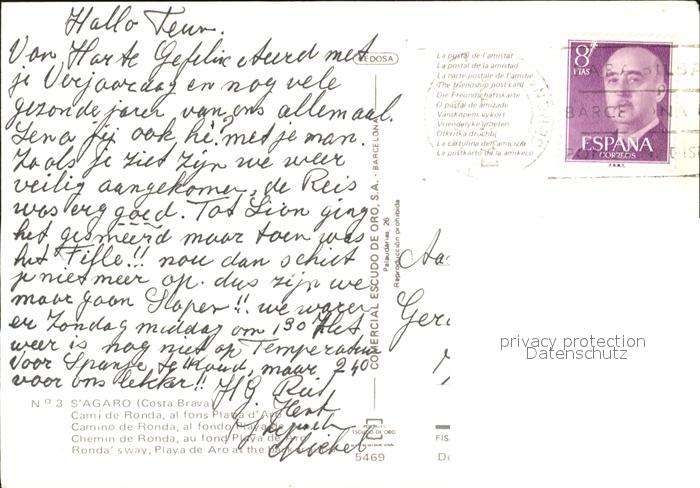 Hallo Teun.
Van Harte Gefeliciteerd met
je Verjaardag en nog vele
gezonde jaren van ons allemaal.
Lena jij ook hè? met je man.
Zoals je ziet zijn we weer
veilig aangekomen, de Reis
was erg goed. Tot Lion ging
het gesmeerd maar toen was
het File!! nou dan schiet
je niet meer op. dus zijn we
maar gaan Slapen!! we waren
er Zondag middag om 130 Het
weer is nog niet op Temperatuur
Voor Spanje te Koud, maar 240
voor ons lekker!!
Michel
FEDOSA
COMERCIAL ESCUDO DE ORO, S.A. - BARCELONA
Palaudarias, 26
Reproducción prohibida
La postal de l'amistat
La postal de la amistad
La carte postale de l'amitié
The friendship post card
Die Freundschaftskarte
O postal de amizade
Vanskapens vykort
Vriendelyke groeten
Otkritka druchbi
La cartolina dell'amicizia
La postkarto de la amikeco
BARCELONA
8 PTAS
ESPAÑA
CORREOS
F.N.M.T.
Aa
Gera
privacy protection
Datenschutz
Nº 3 S'AGARO (Costa Brava)
Cami de Ronda, al fons Platja d'Aro
Camino de Ronda, al fondo Playa de
Chemin de Ronda, au fond Playa de Aro
Ronda's way, Playa de Aro at the back
ESCUDO DE ORO
5469
FIS
D